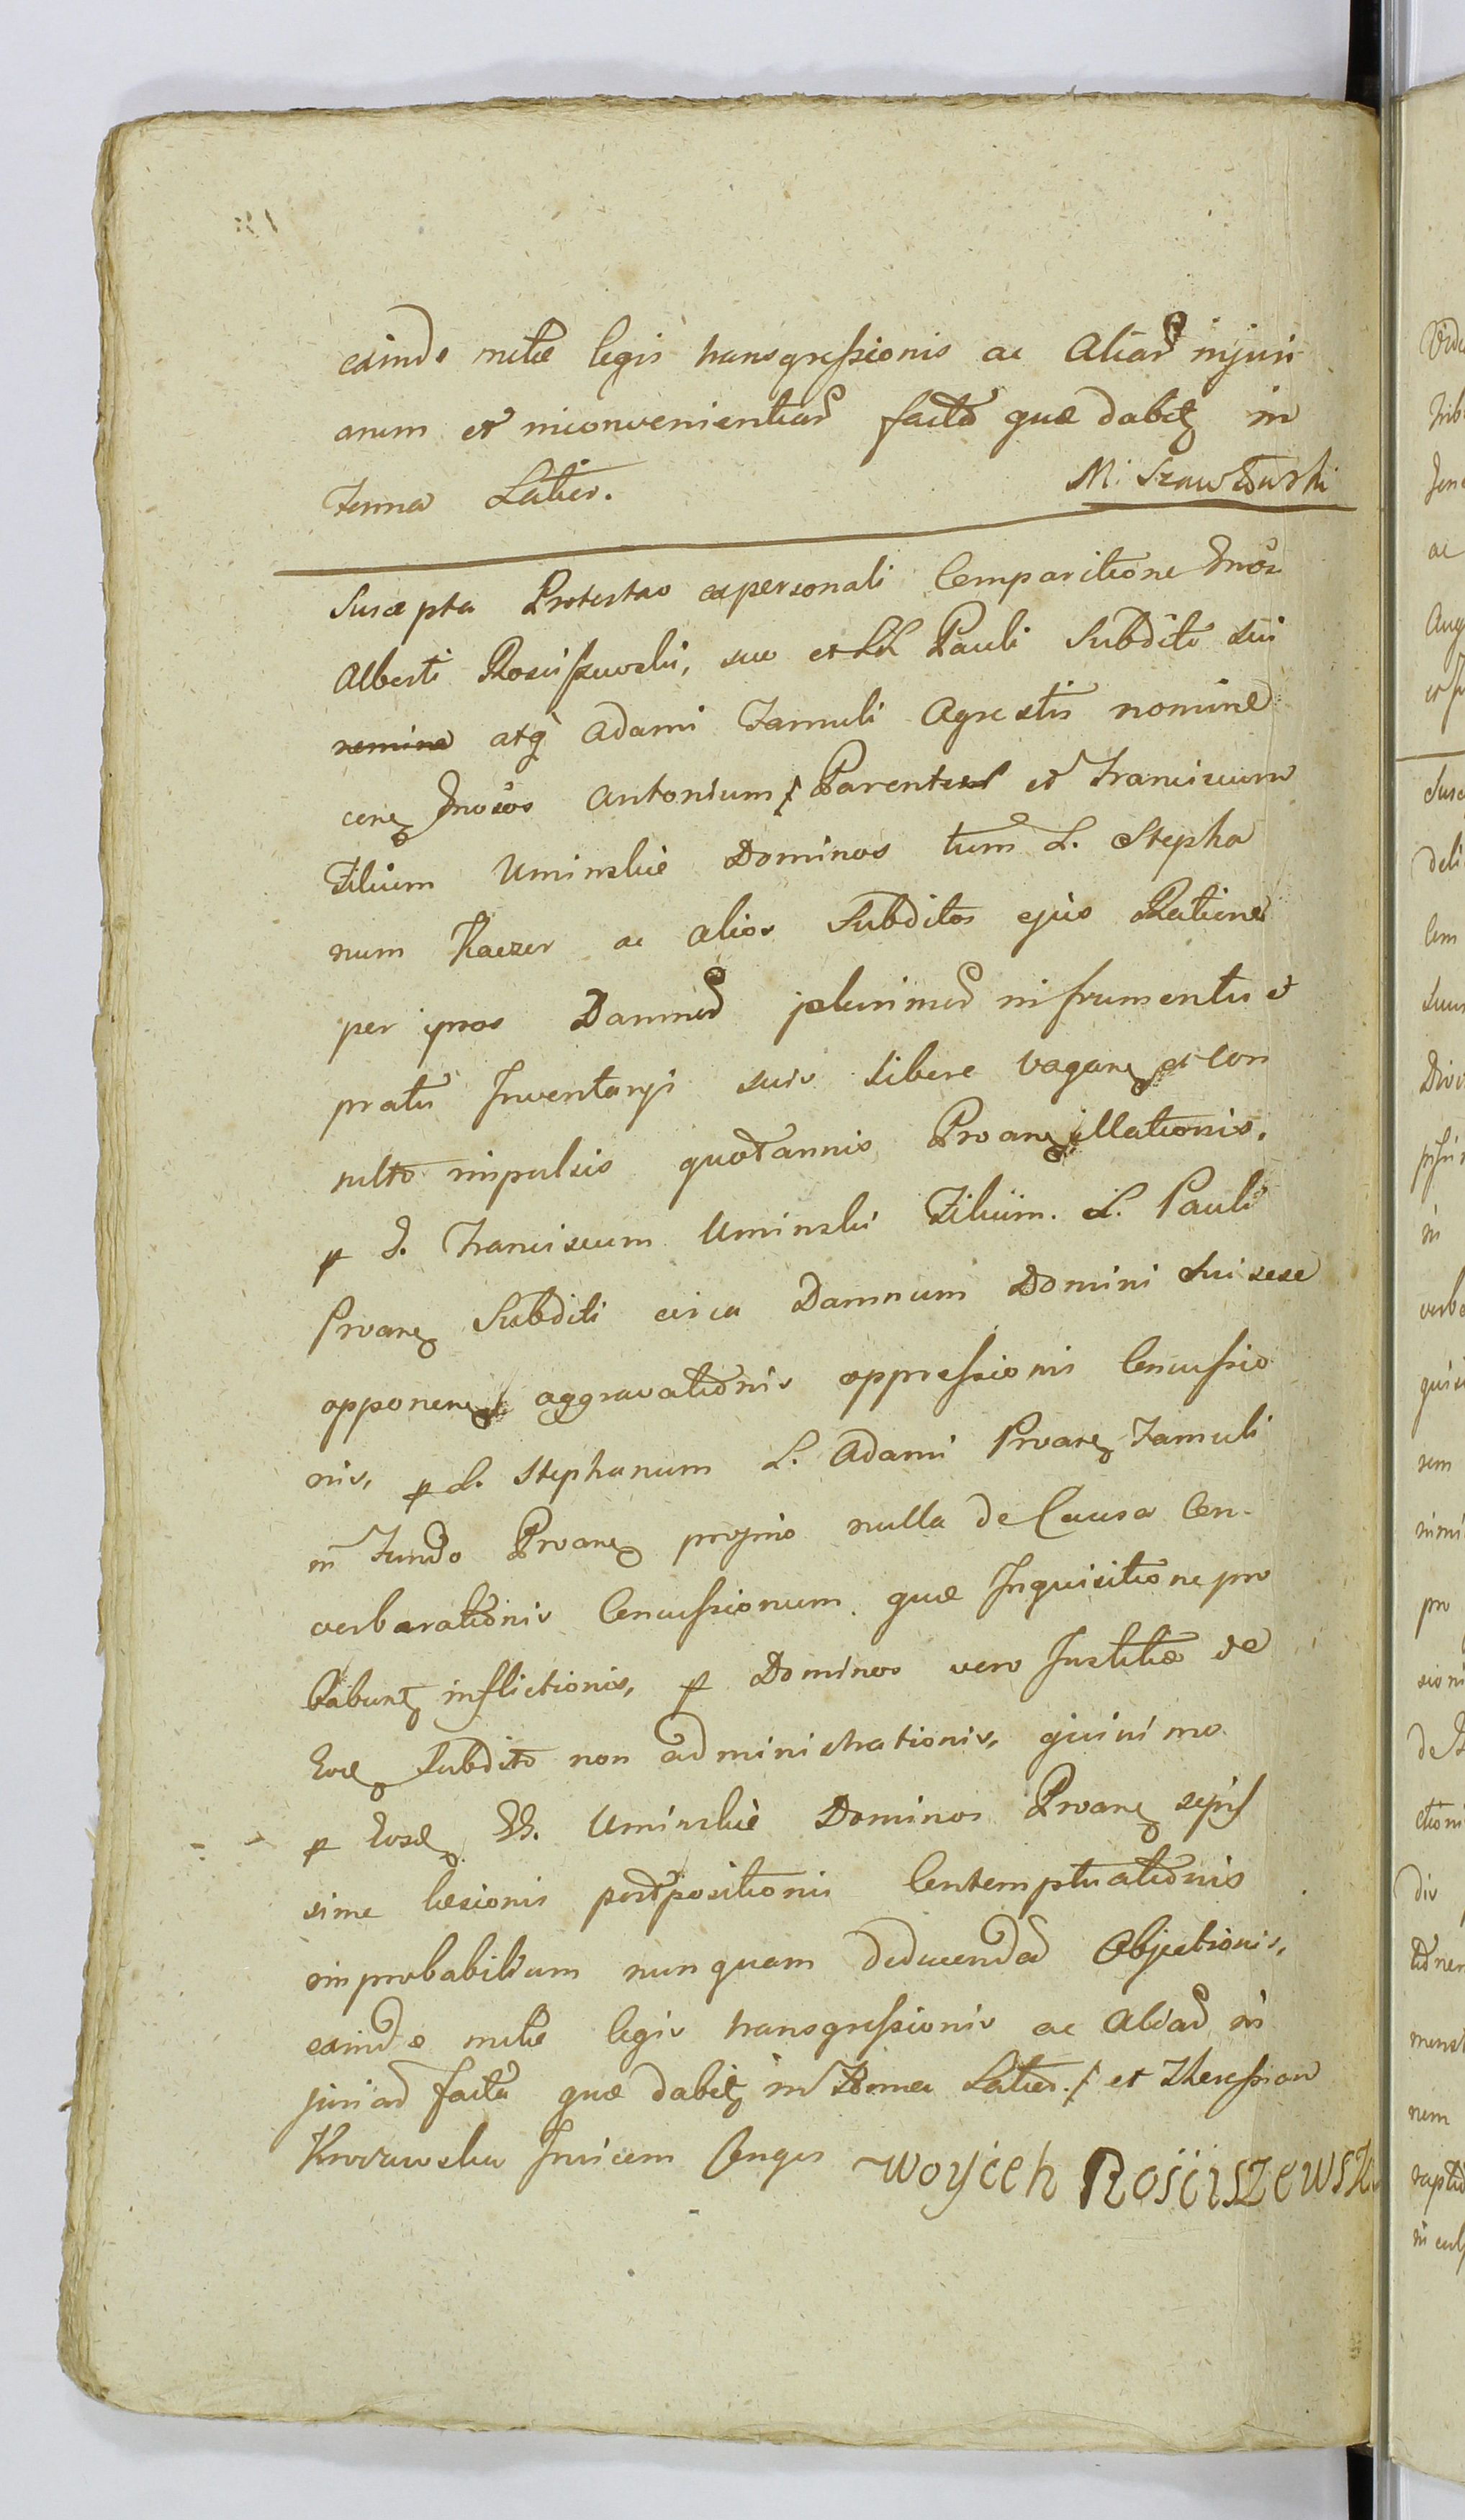 exinde mulctae legis transgressionis ac Aliar injuri
arum et inconvenientiar facta quae dabit in
Termo Latius. M. Szawłowski
Suscepta Protestao ex personali Comparitione Gnosi
Alberti Rosciszewski, suo et LL Pauli Subditi sui
nomine atq Adami Famuli Agrestis nomine
con Gnosos Antonium Parentem et Franciscum
Filium Uminskie Dominos tum L. Stepha
num Kaczor ac alios Subditos ejus Ratione
per ipsos Damnor plurimor in frumentis et
pratis Inventarji suis libere vagan et con
sulto impulsis quotannis Proan illationis,
p G. Franciscum Uminski Filium. L. Pauli
Proan Subditi circa Damnum Domini Sui sese
opponen aggravationis oppressionis Concussio
nis, p L. Stephanum L. Adami Proan Famuli
in Fundo Proan proprio nulla de Causa Con
verberationis Concussionum quae Inquisitione pro
babunt inflictionis, p Dominos vero Justitiae de
Eod Subdito non administrationis, quinimo
p Eosd GG. Uminskie Dominos Proan sepis
sime laesionis postpositionis Contemptuationis
improbabilium nunquam deducendar Objectionis,
exinde mulctae legis transgressionis ac Aliar in
juriar facta quae dabit in Termo Latius. et
Invicem Woyciech Rosciszewski